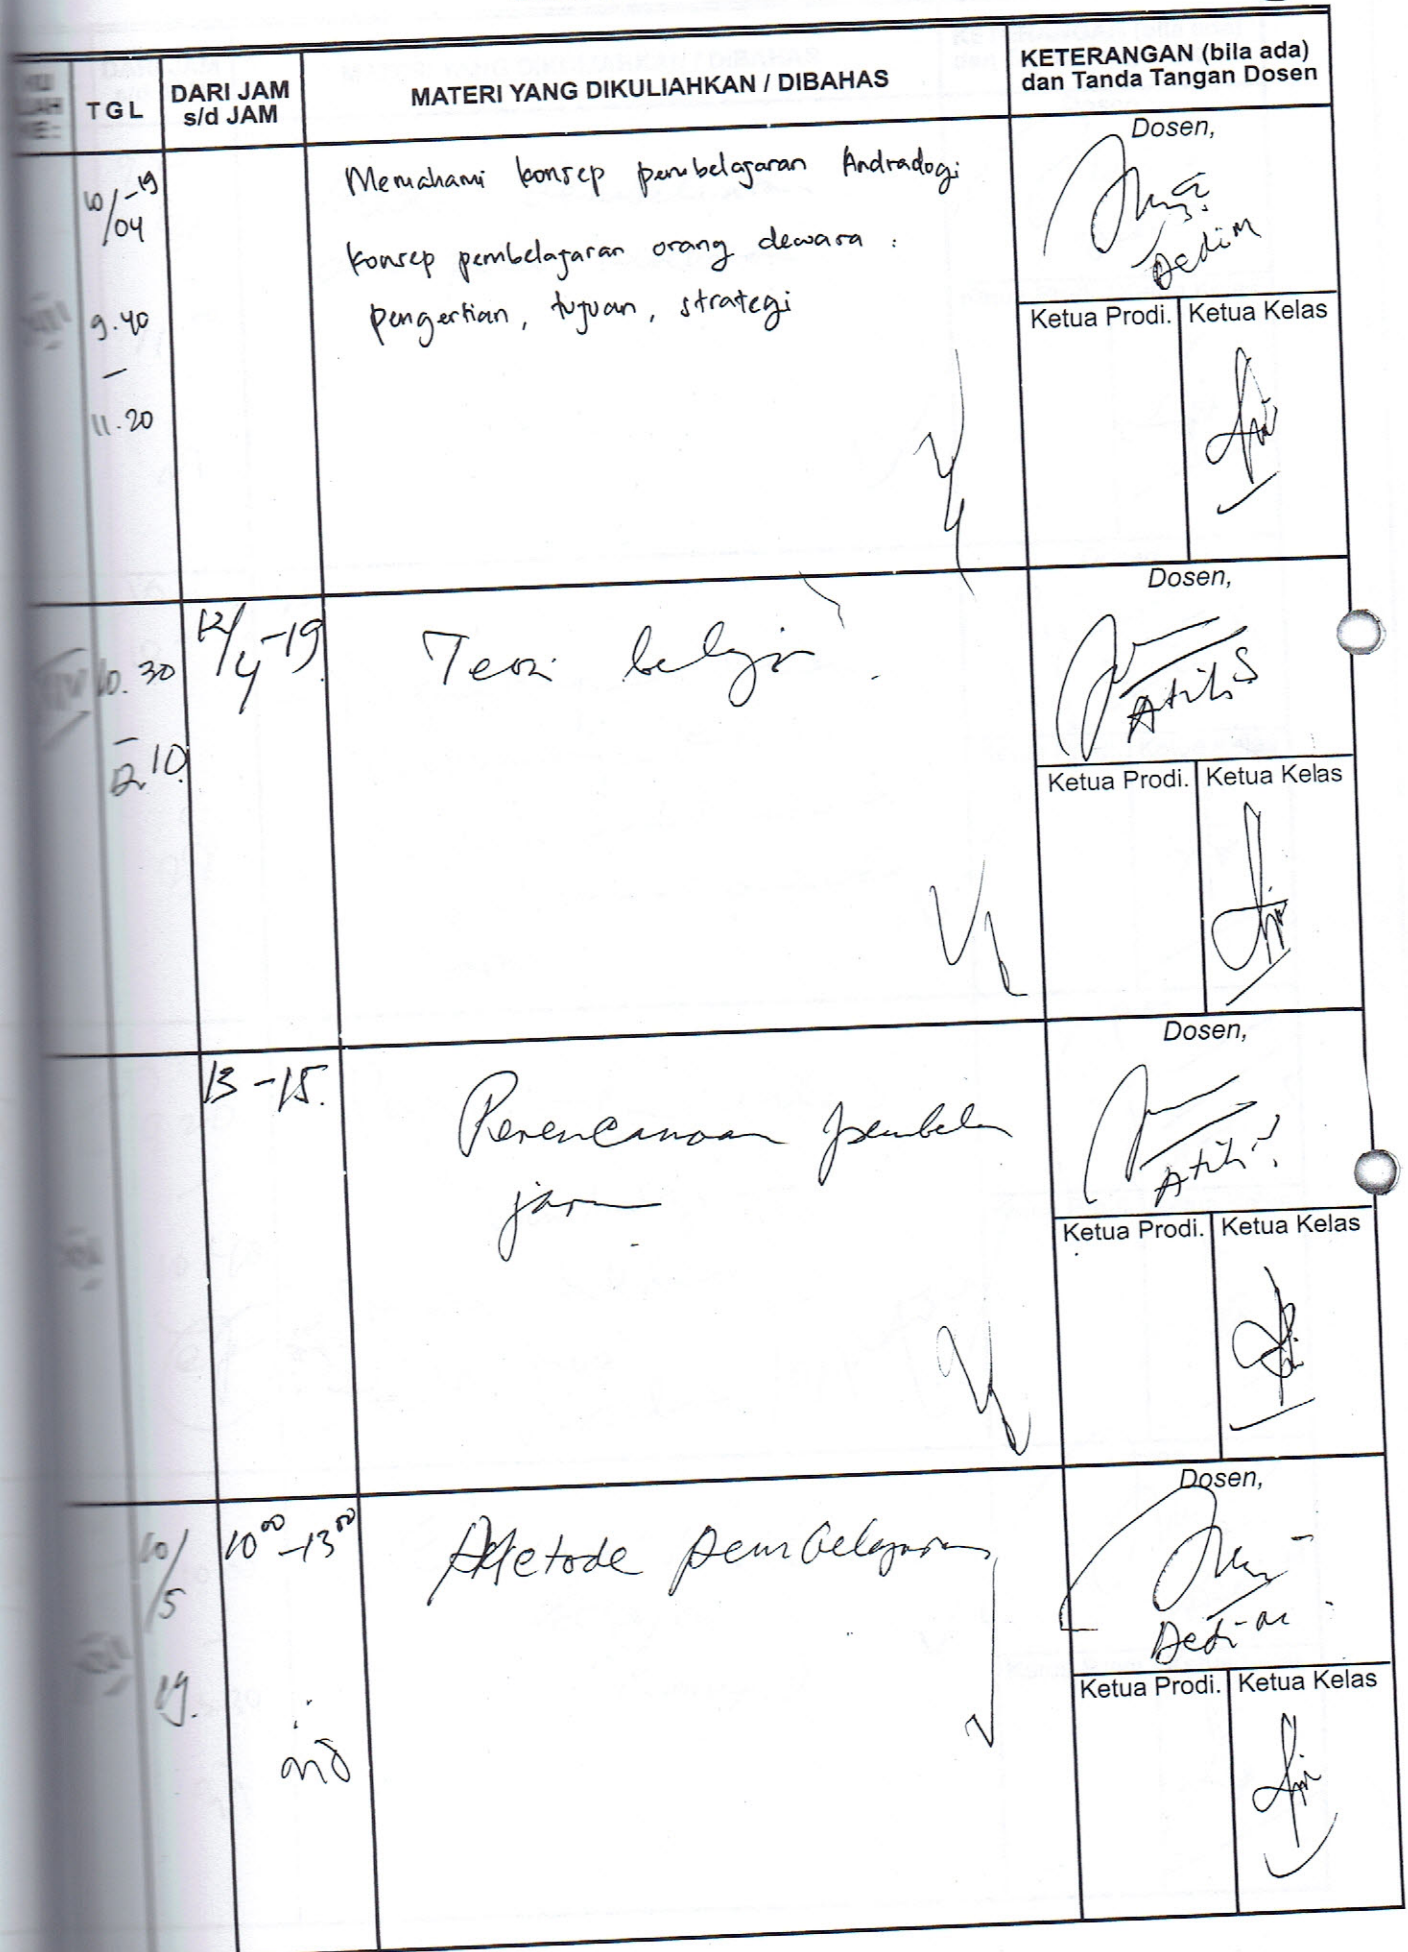 TGL
DARI JAM
s/d JAM
MATERI YANG DIKULIAHKAN / DIBAHAS
KETERANGAN (bila ada)
dan Tanda Tangan Dosen
10/04 -19
9.40
–
11.20
Memahami konsep pembelajaran Andradogi
konsep pembelajaran orang dewasa :
pengertian, tujuan, strategi
Dosen,
Dedi M
Ketua Prodi.
Ketua Kelas
10.30
–
12.10
12/4 -19
Teori belajar
Dosen,
Atik S
Ketua Prodi.
Ketua Kelas
13 - 15.
Perencanaan pembela
jaran
Dosen,
Ketua Prodi.
Ketua Kelas
10/5
19.
10⁰⁰ - 13⁰⁰
Metode pembelajaran
Dosen,
Dedi M
Ketua Prodi.
Ketua Kelas